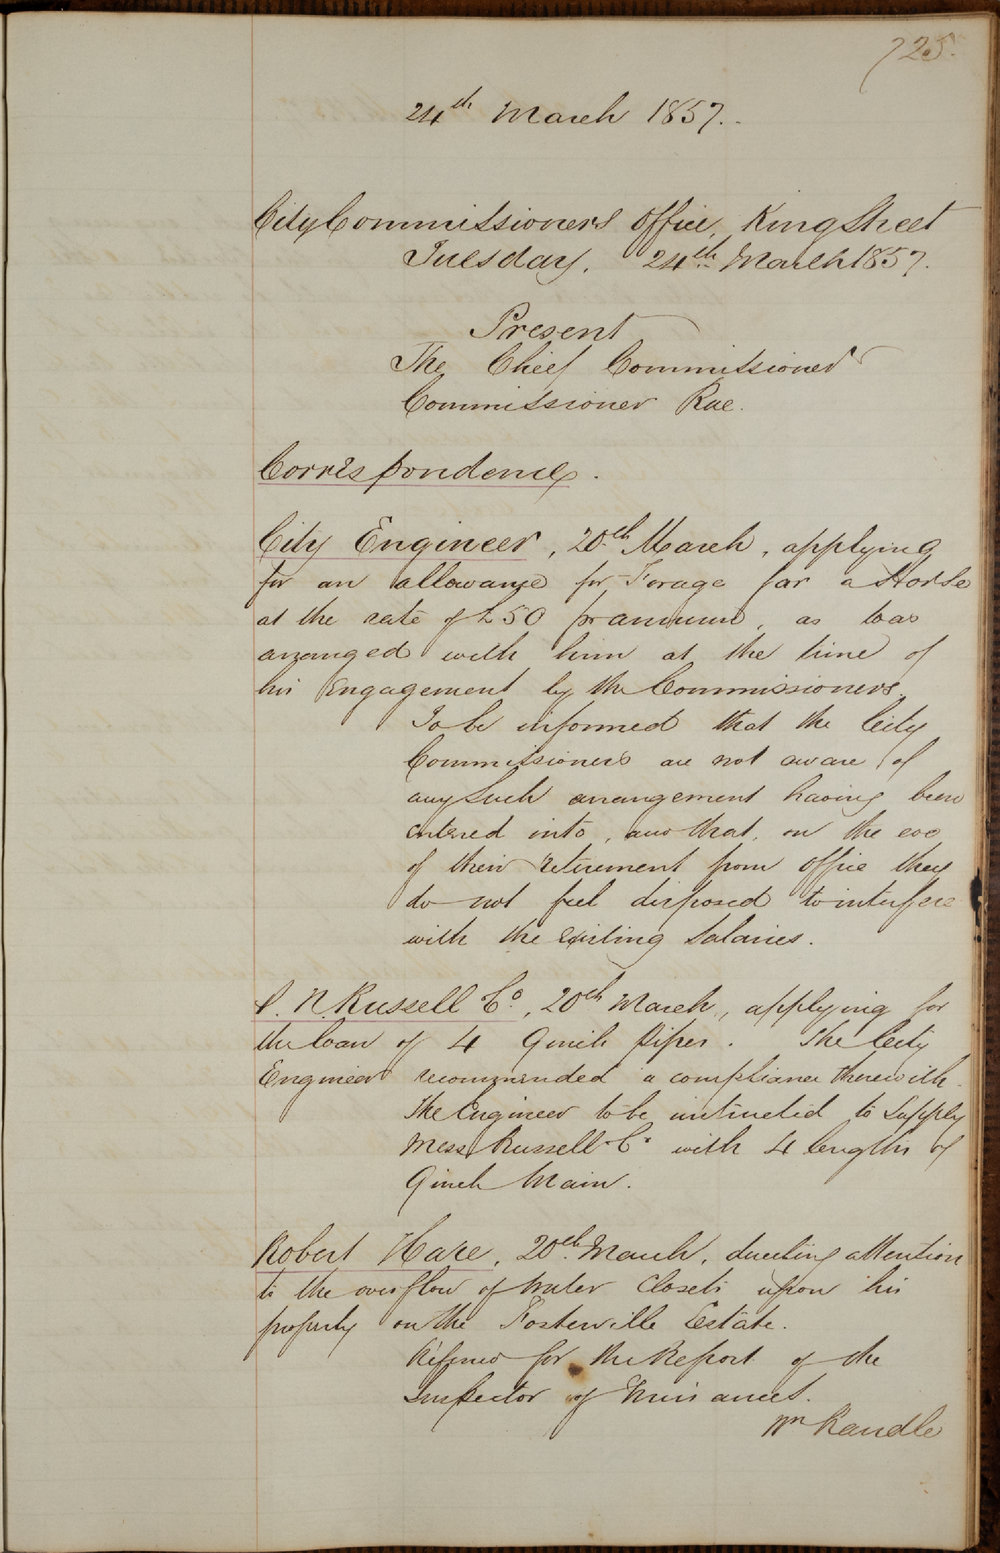 725.
24th March 1857.
City Commissioners Office, King Street
Tuesday, 24th March 1857.
Present
The Chief Commissioner
Commissioner Rae.
Correspondence.
City Engineer, 20th March, applying
for an allowance for Forage for a Horse
at the rate of £50 pr annum, as was
arranged with him at the time of
his Engagement by the Commissioners.
To be informed that the City
Commissioners are not aware of
any Such arrangement having been
entered into, and that, on the eve
of their retirement from Office they
do not feel disposed to interfere
with the existing Salaries.
P. N. Russell Co, 20th March, applying for
the loan of 4 9 inch pipes. The City
Engineer recommended a compliance therewith.
The Engineer to be instructed to Supply
Mess Russell Co with 4 lengths of
9 inch Main.
Robert Hare, 20th March, directing attention
to the overflow of Water Closets upon his
property on the Fosterville Estate.
Referred for the Report of the
Inspector of Nuisances.
Wm Randle